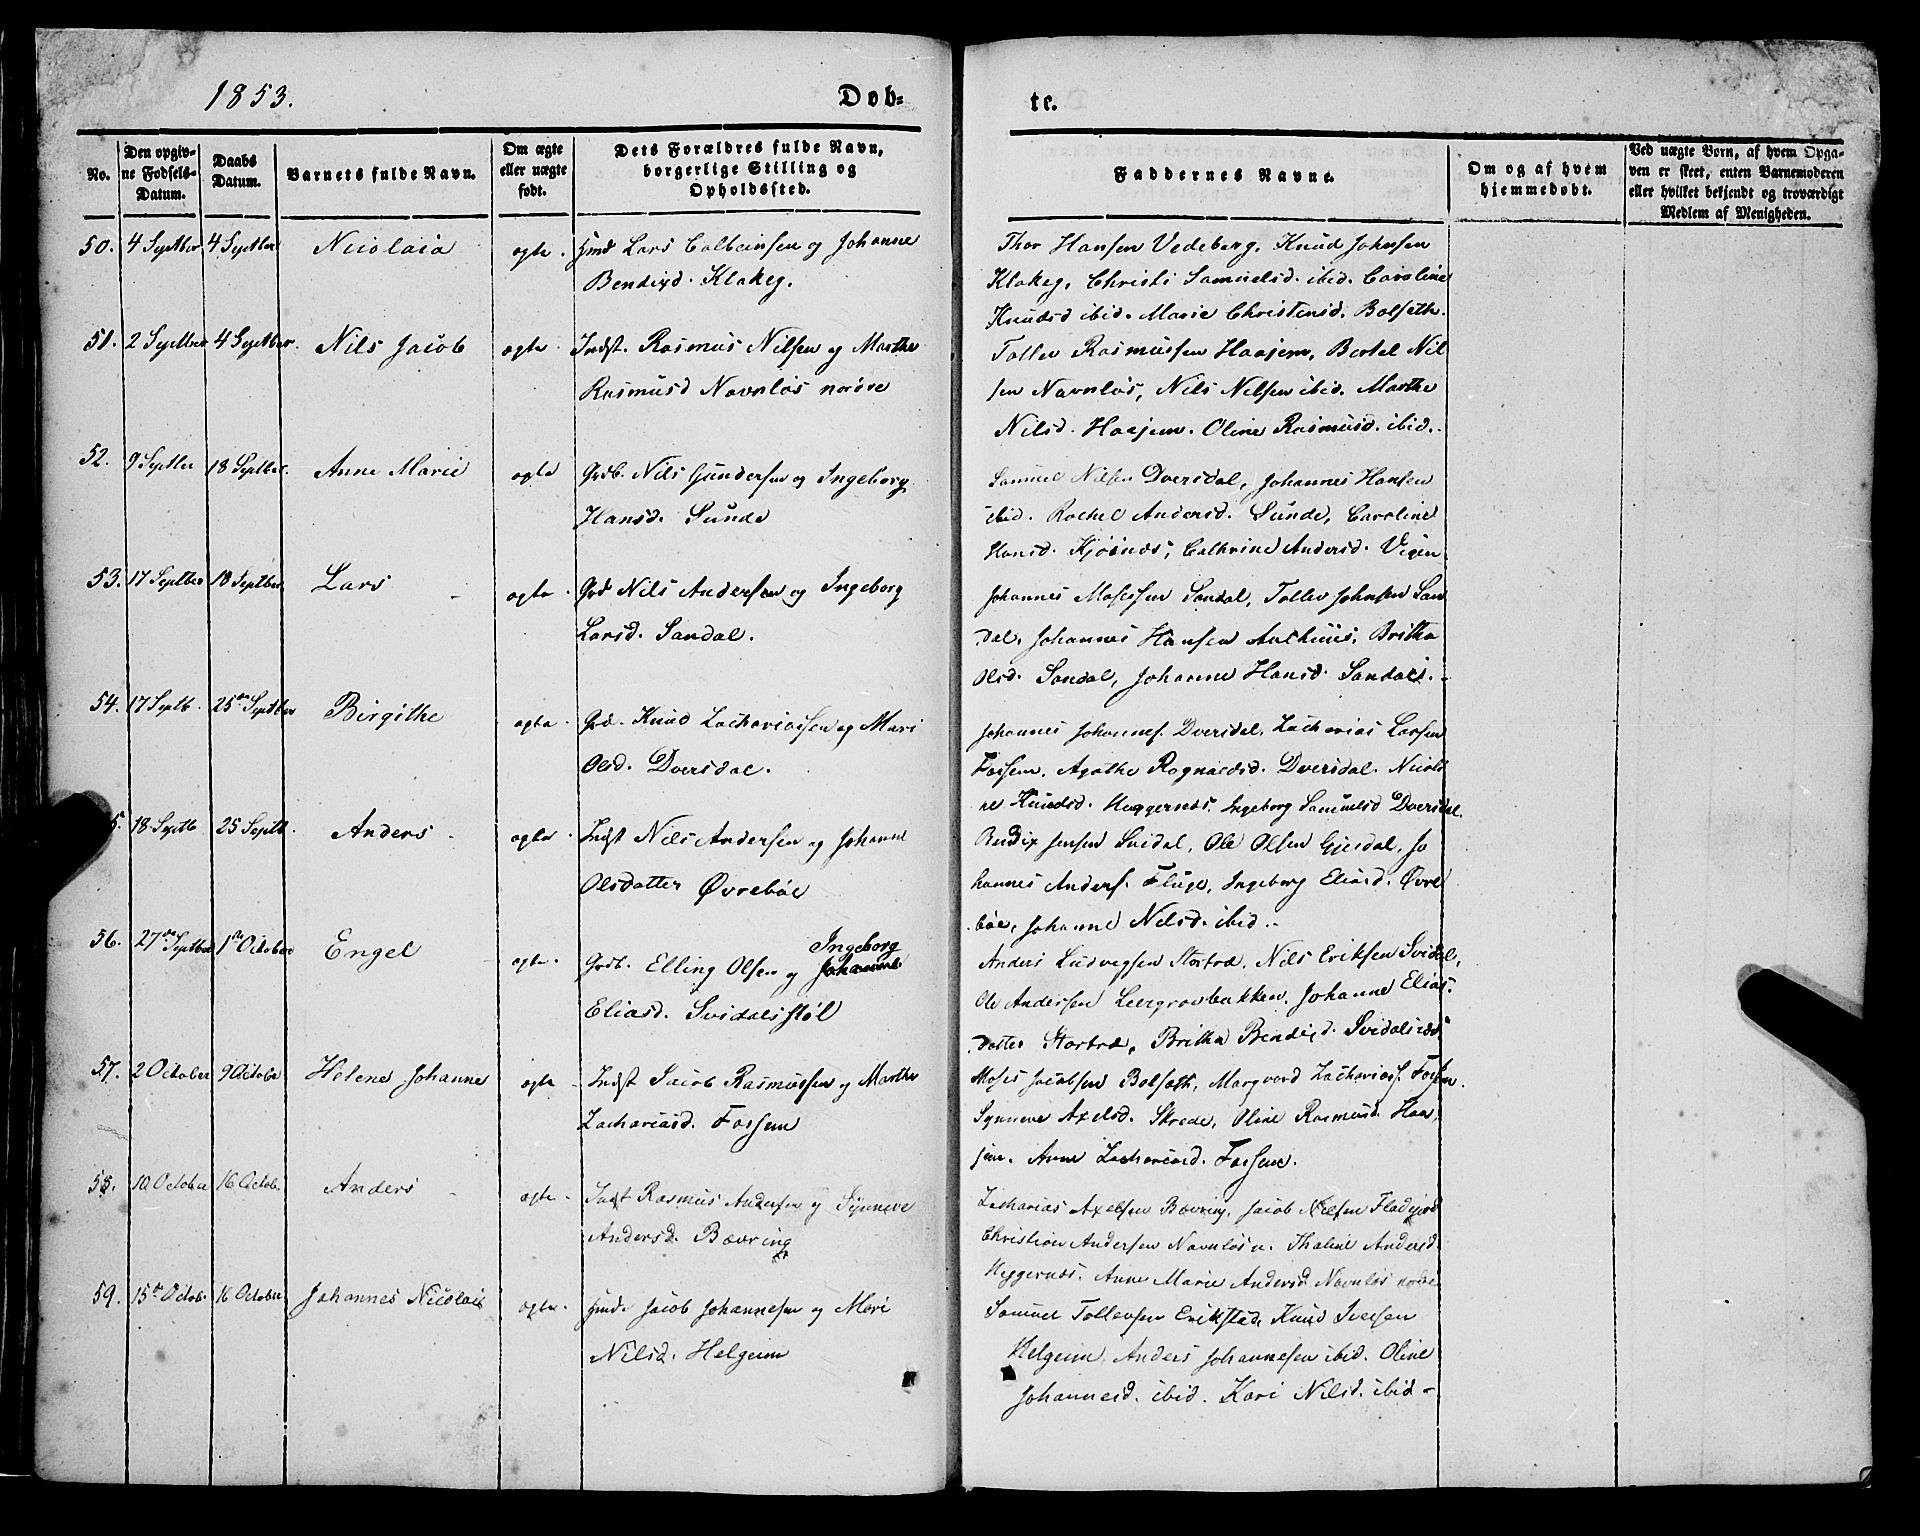 1853.
Døb-
te.
No.
Den opgiv-
ne Fødsels-
Datum.
Daabs
Datum.
Barnets fulde Navn.
Om ægte
eller uægte
født.
Dets Forældres fulde Navn,
borgerlige Stilling og
Opholdssted.
Faddernes Navne.
Om og af hvem
hjemmedøbt.
Ved uægte Børn, af hvem Opga-
ven er skeet, enten Barnemoderen
eller hvilket bekjendt og troværdigt
Medlem af Menigheden.
50. 4 Septber 4 Septber Nicolaia ægte. Hmd Lars Colbeinsen og Johanne
Bendixd. Klakeg.
Thor Hansen Vedeberg, Knud Johnsen
Klakeg, Christi Samuelsd. ibid. Caroline
Knudsd ibid. Marie Christensd. Bolseth.
51. 2 Septber 4 Septber. Nils Jacob ægte Indst. Rasmus Nilsen og Marthe
Rasmusd Navnløs nordre
Tollev Rasmussen Haajem, Bertel Nil
sen Navnløs, Nils Nilsen ibid. Marthe
Nilsd. Haajem. Oline Rasmusd. ibid.
52. 9 Septber 18 Septber. Anne Marie ægte Grdb. Nils Gundersen og Ingeborg
Hansd. Sunde
Samuel Nilsen Dversdal, Johannes Hansen
ibid. Rachel Andersd. Sunde, Caroline
Hansd. Kjøsnæs, Cathrine Andersd.
53. 17 Septber 18 Septber Lars ægte Grd Nils Andersen og Ingeborg
Larsd. Sandal.
Johannes Mosessen Sandal, Tollev Johnsen San
dal, Johannes Hansen Aarhuus, Britha
Olsd. Sandal, Johanne Hansd. Sandal.
54. 17 Septb. 25de Septber Birgithe ægte Grd. Knud Zachariassen og Mari
Olsd. Dversdal.
Johannes Johannes. Dversdal, Zacharias Larsen
Fossem, Agathe Rognaldsd. Dversdal. Nicoli
ne Knudsd. Heggernæs. Ingeborg Samuelsd Dversdal.
5. 18 Septb 25 Septb. Anders ægte Indst Nils Andersen og Johanne
Olsdatter Øvrebøe
Bendix Jensen Svidal, Ole Olsen Gjesdal, Jo
hannes Anders. Fluge, Ingeborg Eliasd. Øvre
bøe, Johanne Nilsd. ibid.
56. 27de Septber 1ste October Engel ægte. Grdb. Elling Olsen og Johanne Ingeborg
Eliasd. Svidalsstøl
Anders Ludvigsen Stortræ, Nils Eriksen Svidal,
Ole Andersen Leergrovbakken, Johanne Elias
datter Stortræ, Britha Bendixd.
57. 2 October 9 October Helene Johanne ægte Indst Jacob Rasmussen og Marthe
Zachariasd. Fossem
Moses Jacobsen Bolseth, Margvard Zachariass. Fossem.
Synneve Axelsd. Skrede, Oline Rasmusd. Haa
jem. Anne Zachariasd. Fossem.
58. 10 October 16 Octob. Anders ægte Indst Rasmus Andersen og Synneve
Andersd. Bævring
Zacharias Axelsen Bævring, Jacob Nilsen Fladjord
Christian Andersen Navnløs n. Thaline Andersd.
Heggernæs. Anne Marie Andersd Navnløs nordre
59. 15de Octob. 16 October Johannes Nicolai ægte. Hmd. Jacob Johannesen og Mari
Nilsd. Helgeim
Samuel Tollevsen Erikstad, Knud Iversen
Helgeim, Anders Johannesen ibid. Oline
Johannesd. ibid. Kari Nilsd. ibid